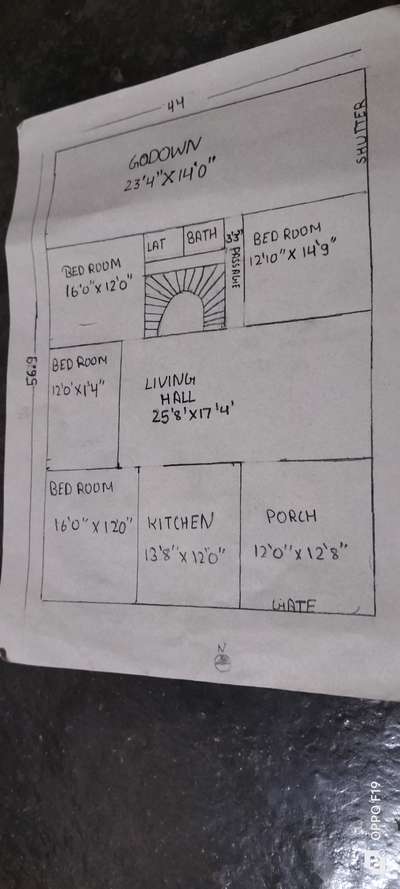 44
GODOWN
23'4" X 14'0"
SHUTTER
56.9
BED ROOM
16'0" X 12'0"
LAT
BATH
3'3" PASSAGE
BED ROOM
12'10" X 14'9"
BED ROOM
12'0 X 1'4"
LIVING
HALL
25'8' X 17'4'
BED ROOM
16'0" X 12'0"
KITCHEN
13'8" X 12'0"
PORCH
12'0" X 12'8"
GATE
N
OPPO F19